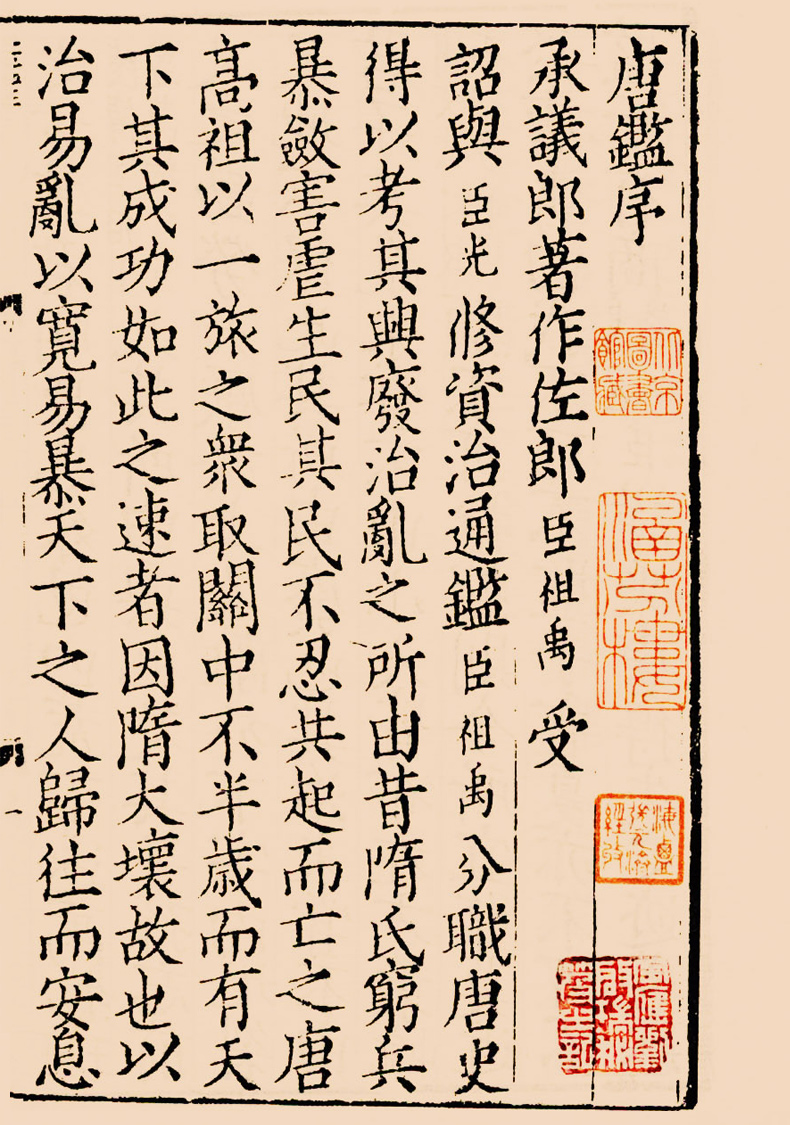 唐鑑序
承議郎著作佐郎臣祖禹受
詔與臣光修資治通鑑臣祖禹分職唐史
得以考其興廢治亂之所由昔隋氏窮兵
暴斂害虐生民其民不忍共起而亡之唐
高祖以一旅之衆取關中不半歲而有天
下其成功如此之速者因隋大壞故也以
治易亂以寬易暴天下之人歸往而安息
北京圖書館藏
涵芬樓
海鹽張元濟經收